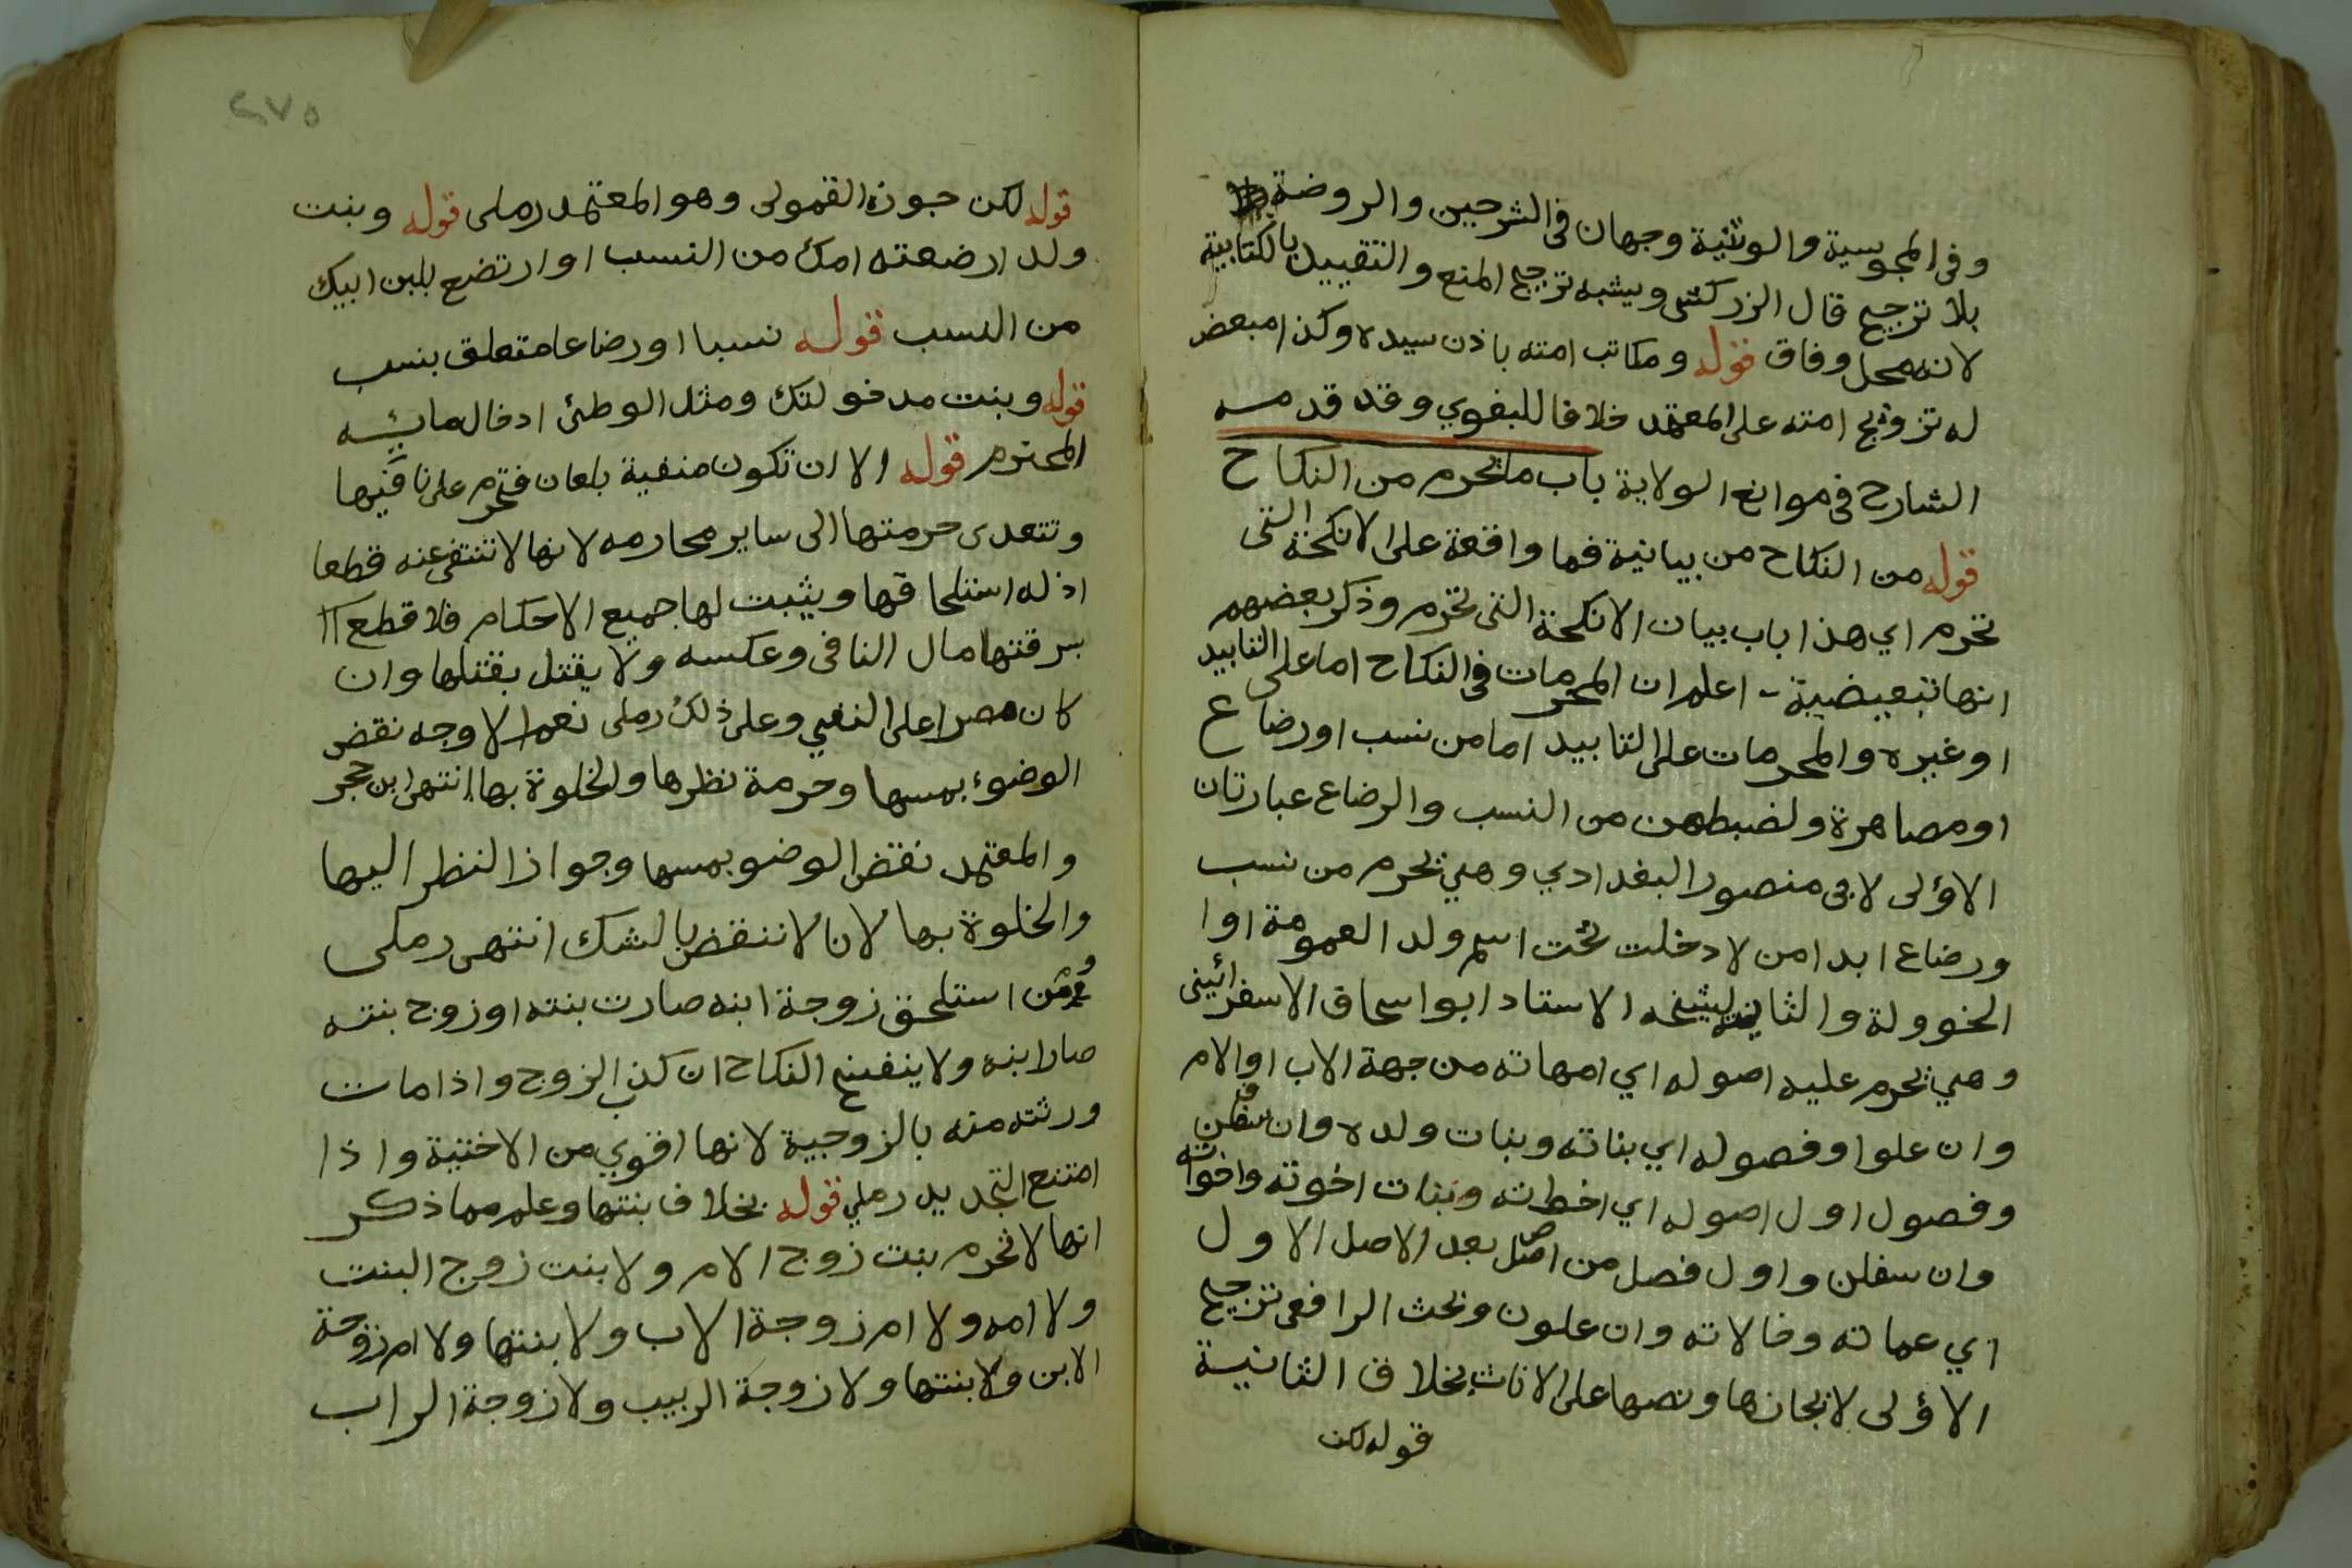 وفي المجوسية والوثنية وجهان في الشرحين والروضة
بلا ترجيح قال الزركشي ويشبه ترجيح المنع والتقييد بالكتابية
لانه محل وفاق قوله ومكاتب امته باذن سيده وكذا مبعض
له تزويج امته على المعتمد خلافا للبغوي وقد قدمه
الشارح في موانع الولاية باب ما تحرم من النكاح
قوله من النكاح من بيانية فما واقعة على الانكحة التي
تحرم اي هذا باب بيان الانكحة التي تحرم وذكر بعضهم
انها تبعيضية - اعلم ان المحرمات في النكاح اما على التابيد
او غيره والمحرمات على التابيد اما من نسب او رضاع
او مصاهرة ولضبطهن من النسب والرضاع عبارتان
الاولى لابي منصور البغدادي وهي تحرم من نسب
ورضاع ابدا من لا دخلت تحت اسم ولد العمومة او ا
الخوولة والثانية لشيخه الاستاد ابو اسحاق الاسفرائيني
وهي تحرم عليه اصوله اي امهاته من جهة الاب او الام
وان علوا وفصوله اي بناته وبنات ولده وان سفلن
وفصول اول اصوله اي اخواته وبنات اخوته واخواته
وان سفلن واول فصل من اصل بعد الاصل الاول
اي عماته وخالاته وان علون وبحث الرافعي ترجيح
الاولى لايجازها ونصها على الاناث بخلاف الثانية
قوله لكن
٢٧٥
قوله لكن جوزه القمولي وهو المعتمد رملي قوله وبنت
ولد ارضعته امك من النسب او ارتضع بلبن ابيك
من النسب قوله نسبا او رضاعا متعلق بنسب
قوله وبنت مدخولتك ومثل الوطئ ادخال مائه
المحترم قوله الا ان تكون منفية بلعان فتحرم على نافيها
وتتعدى حرمتها الى ساير محارمه لانها لا تنتفي عنه قطعا
اذ له استلحاقها ويثبت لها جميع الاحكام فلا قطع
بسرقتها مال النافي وعكسه ولا يقتل بقتلها وان
كان مصرا على النفي وعلى ذلك رملي نعم الاوجه نقض
الوضوء بمسها وحرمة نظرها والخلوة بها انتهى ابن حجر
والمعتمد نقض الوضو بمسها وجواز النظر اليها
والخلوة بها لانا لا ننقض بالشك انتهى رملي
ومن استلحق زوجة ابنه صارت بنته او زوج بنته
صار ابنه ولا ينفسخ النكاح ان كذب الزوج واذا مات
ورثته منه بالزوجية لانها اقوي من الاختية واذا
امتنع التجديد رملي قوله بخلاف بنتها وعلم مما ذكر
انها لا تحرم بنت زوج الام ولا بنت زوج البنت
ولا امه ولا ام زوجة الاب ولا بنتها ولا ام زوجة
الابن ولا بنتها ولا زوجة الربيب ولا زوجة الراب